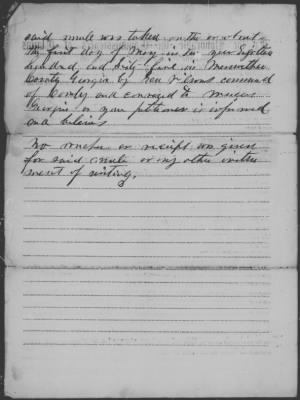 said mule was taken on the or about
the first day of May in the year Eighteen
hundred and Sixty five in Meriwether
County Georgia by Gen Wilsons command
of Cavalry and conveyed to Macon
Georgia as your petitioner is informed
and believes
No voucher or receipt was given
for said mule or any other instru
ment of writing.